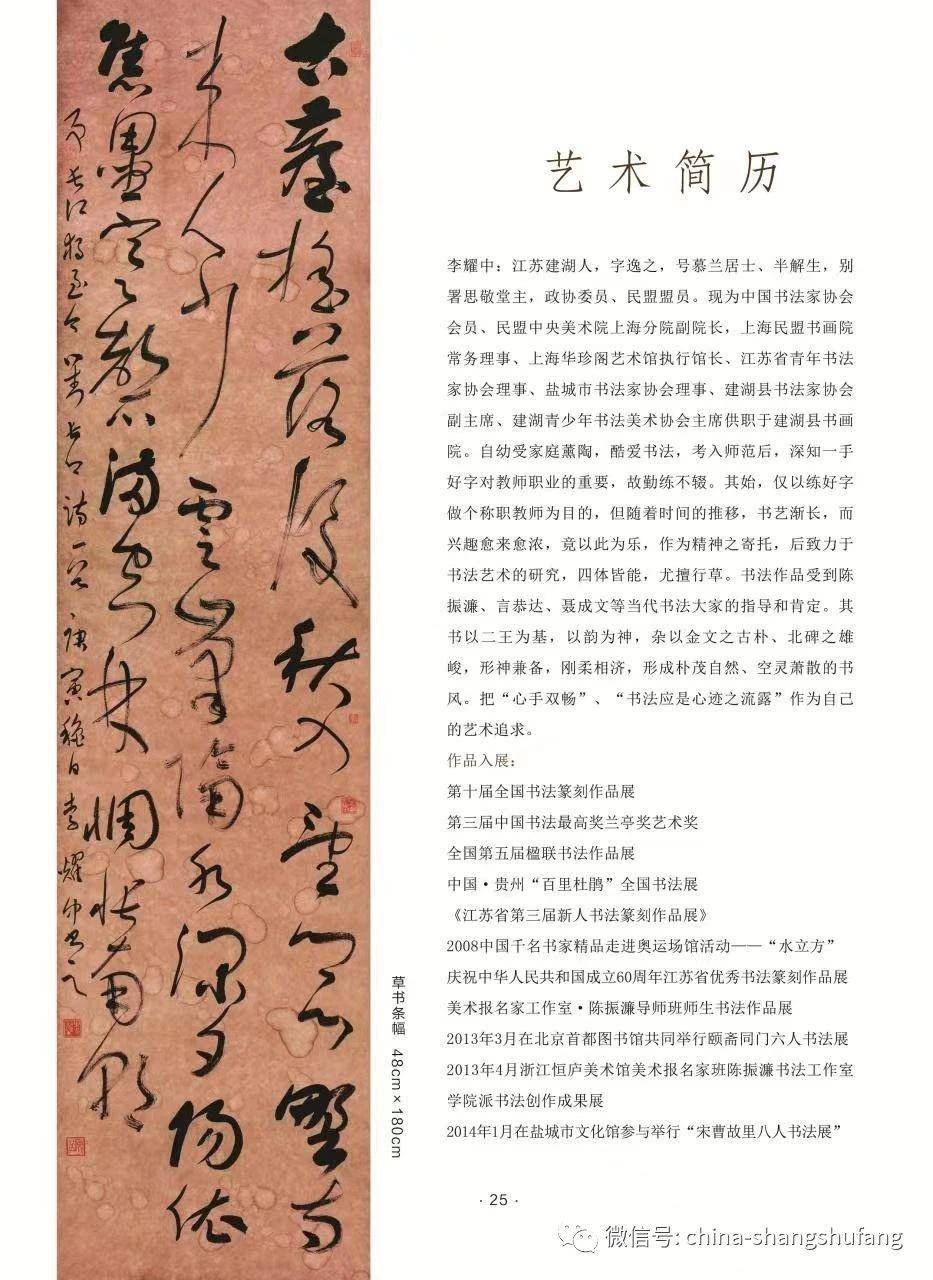 古臺搖落後秋入望鄉心野寺
來人少雲峰隔水深夕陽依
舊壘寒磬滿空林惆悵南朝
事長江獨至今 劉長卿詩一首 庚寅穐日李耀中書之
草书条幅 48cm×180cm
艺术简历
李耀中：江苏建湖人，字逸之，号慕兰居士、半解生，别
署思敬堂主，政协委员、民盟盟员。现为中国书法家协会
会员、民盟中央美术院上海分院副院长，上海民盟书画院
常务理事、上海华珍阁艺术馆执行馆长、江苏省青年书法
家协会理事、盐城市书法家协会理事、建湖县书法家协会
副主席、建湖青少年书法美术协会主席供职于建湖县书画
院。自幼受家庭薰陶，酷爱书法，考入师范后，深知一手
好字对教师职业的重要，故勤练不辍。其始，仅以练好字
做个称职教师为目的，但随着时间的推移，书艺渐长，而
兴趣愈来愈浓，竟以此为乐，作为精神之寄托，后致力于
书法艺术的研究，四体皆能，尤擅行草。书法作品受到陈
振濂、言恭达、聂成文等当代书法大家的指导和肯定。其
书以二王为基，以韵为神，杂以金文之古朴、北碑之雄
峻，形神兼备，刚柔相济，形成朴茂自然、空灵萧散的书
风。把“心手双畅”、“书法应是心迹之流露”作为自己
的艺术追求。
作品入展：
第十届全国书法篆刻作品展
第三届中国书法最高奖兰亭奖艺术奖
全国第五届楹联书法作品展
中国·贵州“百里杜鹃”全国书法展
《江苏省第三届新人书法篆刻作品展》
2008中国千名书家精品走进奥运场馆活动——“水立方”
庆祝中华人民共和国成立60周年江苏省优秀书法篆刻作品展
美术报名家工作室·陈振濂导师班师生书法作品展
2013年3月在北京首都图书馆共同举行颐斋同门六人书法展
2013年4月浙江恒庐美术馆美术报名家班陈振濂书法工作室
学院派书法创作成果展
2014年1月在盐城市文化馆参与举行“宋曹故里八人书法展”
·25·
微信号: china-shangshufang